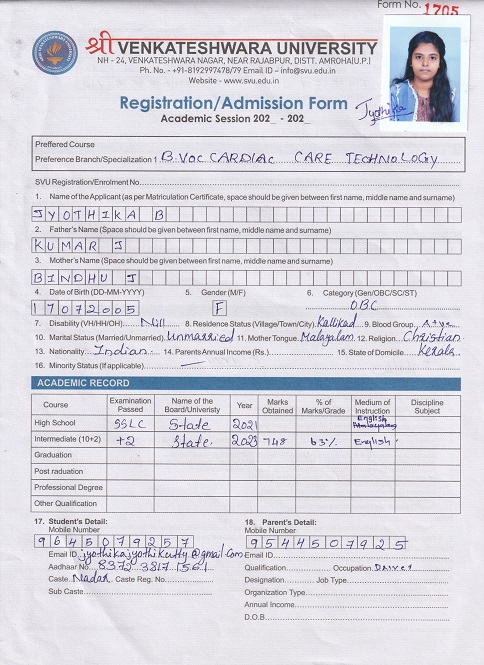 Form No. 1705
श्री VENKATESHWARA UNIVERSITY
NH - 24, VENKATESHWARA NAGAR, NEAR RAJABPUR, DISTT. AMROHA(U.P.)
Ph. No. - +91-8192997478/79 Email ID – info@svu.edu.in
Website - www.svu.edu.in
Registration/Admission Form
Jyothika
Academic Session 202_ - 202_
Preffered Course
Preference Branch/Specialization 1. B.VOC CARDIAC CARE TECHNOLOGY
SVU Registration/Enrolment No.
1. Name of the Applicant (as per Matriculation Certificate, space should be given between first name, middle name and surname)
JYOTHIKA B
2. Father's Name (Space should be given between first name, middle name and surname)
KUMAR J
3. Mother's Name (Space should be given between first name, middle name and surname)
BINDHU J
4. Date of Birth (DD-MM-YYYY) 5. Gender (M/F) 6. Category (Gen/OBC/SC/ST)
17072005 F OBC
7. Disability (VH/HH/OH) Nill 8. Residence Status (Village/Town/City) Kallikad 9. Blood Group A+ve
10. Marital Status (Married/Unmarried) Unmarried 11. Mother Tongue Malayalam 12. Religion Christian
13. Nationality Indian 14. Parents Annual Income (Rs.) 15. State of Domicile Kerala
16. Minority Status (If applicable) —
ACADEMIC RECORD
Course Examination Passed Name of the Board/Univeristy Year Marks Obtained % of Marks/Grade Medium of Instruction Discipline Subject
High School SSLC State 2021 English
Intermediate (10+2) +2 State 2023 748 63% English
Graduation
Post raduation
Professional Degree
Other Qualification
17. Student's Detail: 18. Parent's Detail:
Mobile Number Mobile Number
9645079257 9544507925
Email ID jyothikajyothikutty@gmail.com Email ID
Aadhaar No. 8372 3817 1561 Qualification Occupation Driver
Caste Nadar Caste Reg. No. Designation Job Type
Sub Caste Organization Type
Annual Income
D.O.B